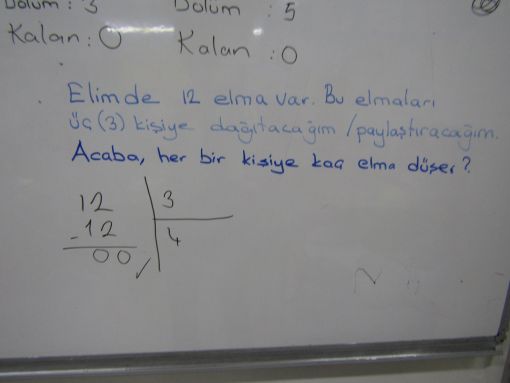 Bölüm : 3 Bölüm : 5
Kalan : 0 Kalan : 0
Elimde 12 elma var. Bu elmaları
üç (3) kişiye dağıtacağım / paylaştıracağım.
Acaba, her bir kişiye kaç elma düşer?
12 3
- 12 4
00